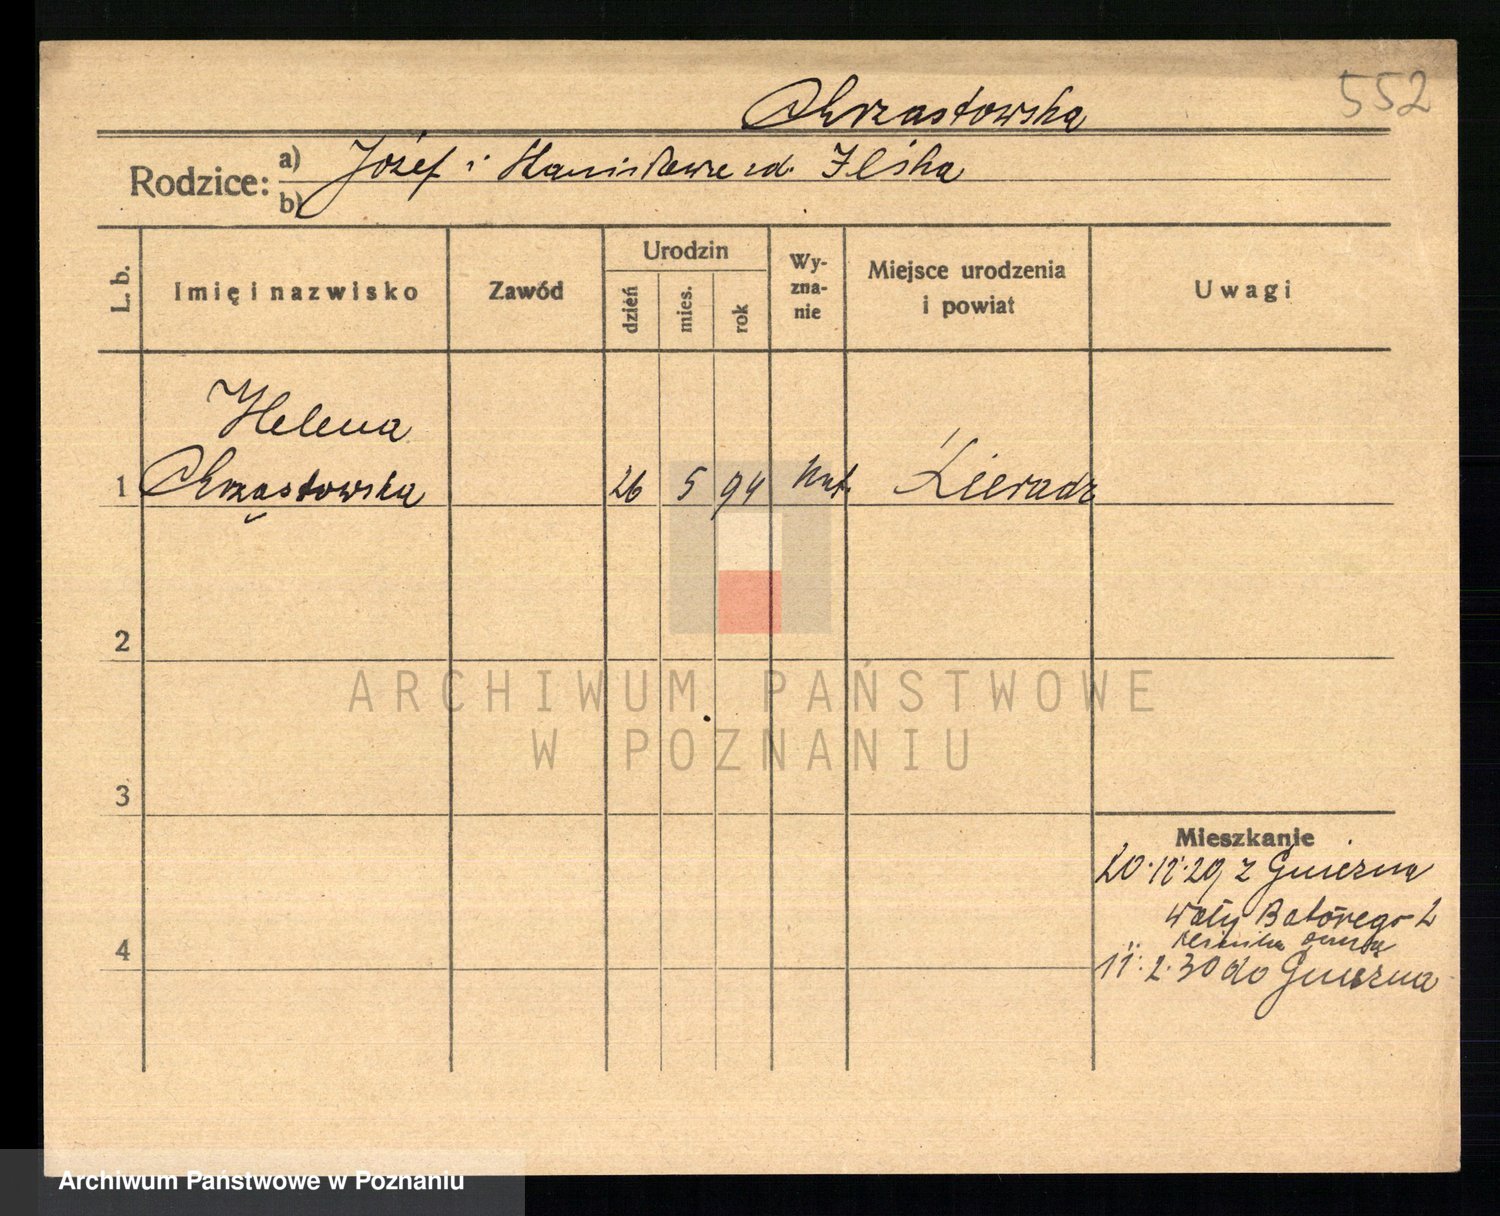 552
Chrzastowska
Rodzice: a) Józef i Stanisława zd. Ilska
b)
L. b.
Imię i nazwisko
Zawód
Urodzin
dzień
mies.
rok
Wy-
zna-
nie
Miejsce urodzenia
i powiat
Uwagi
Helena
1 Chrząstowska 26 5 94 kat. Sieradz
2
3
4
Mieszkanie
20.12.29 z Gniezna
Wały Batorego 2
11.2.30 do Gniezna
ARCHIWUM PAŃSTWOWE
W POZNANIU
Archiwum Państwowe w Poznaniu